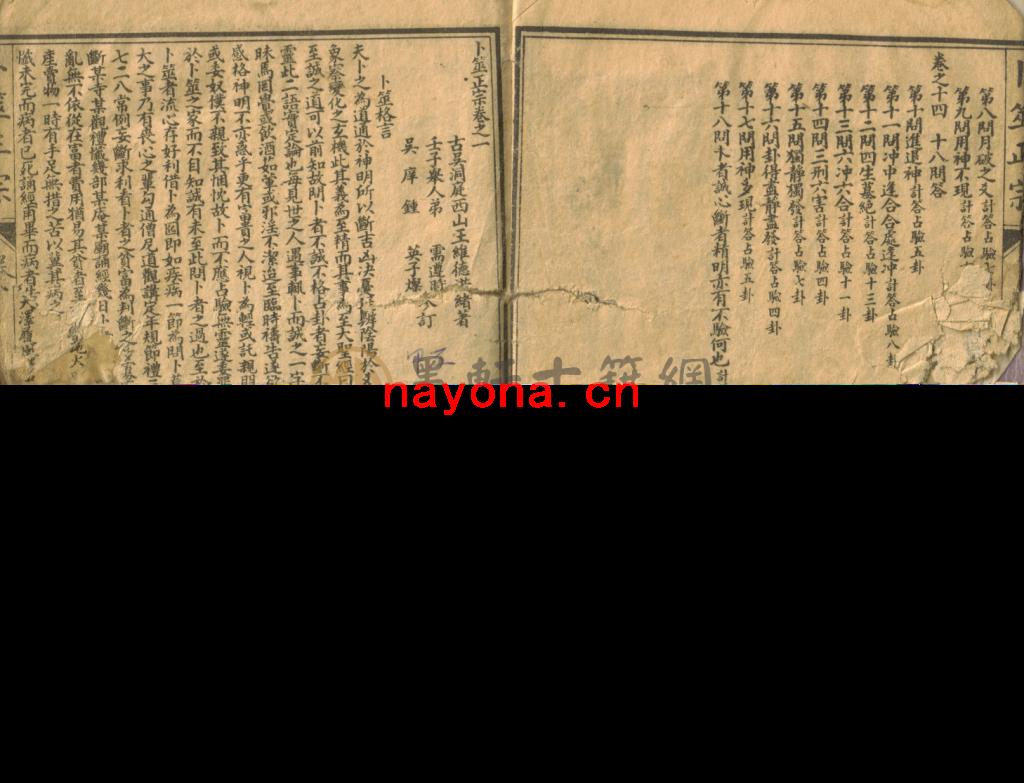 第八問月破之爻計答占驗七卦
第九問用神不現計答占驗
卷之十四 十八問答
第十問進退神計答占驗五卦
第十一問冲中逢合合處逢冲計答占驗八卦
第十二問四生墓絕計答占驗十三卦
第十三問六冲六合計答占驗十一卦
第十四問三刑六害計答占驗四卦
第十五問獨靜獨發計答占驗七卦
第十六問卦得盡靜盡發計答占驗四卦
第十七問用神多現計答占驗五卦
第十八問卜者誠心斷者精明亦有不驗何也計
卜筮正宗卷之一
古吳洞庭西山王維德洪緒著
壬子舉人弟 需遵時
吳庠 鍾 英子燦 仝訂
吳
卜筮格言
夫卜之為道通於神明所以斷吉凶決憂疑辨陰陽於爻
象察變化之玄機此其義為至精而其事為至大聖經曰
至誠之道可以前知故問卜者不誠不格占卦者妄斷不
靈此二語實定論也每見世之人遇事輒卜而誠之一字
昧焉罔覺或飲酒茹葷或邪淫不潔迨至臨時禱告遂欲
感格神明不亦惑乎更有富貴之人視卜為輕或託親朋
或委奴僕不親致其悃忱故卜而不應占驗無靈遂委罪
於卜筮之家而不自知誠有未至此問卜者之過也至於
卜筮者流心存好利借卜為囮即如疾病一節為問卜
大之事乃有喪心之輩勾通僧尼道觀講定年規節禮三
七二八當例妄斷求利看卜者之貧富為判斷之
斷某寺某觀禮懺幾部某庵某廟誦經幾日卜
亂無不依從在富者費用猶易其貧者至
產賣物一時有手足無措之苦以冀其病
懺未完而病者已死誦經甫畢而病者
nayona.cn